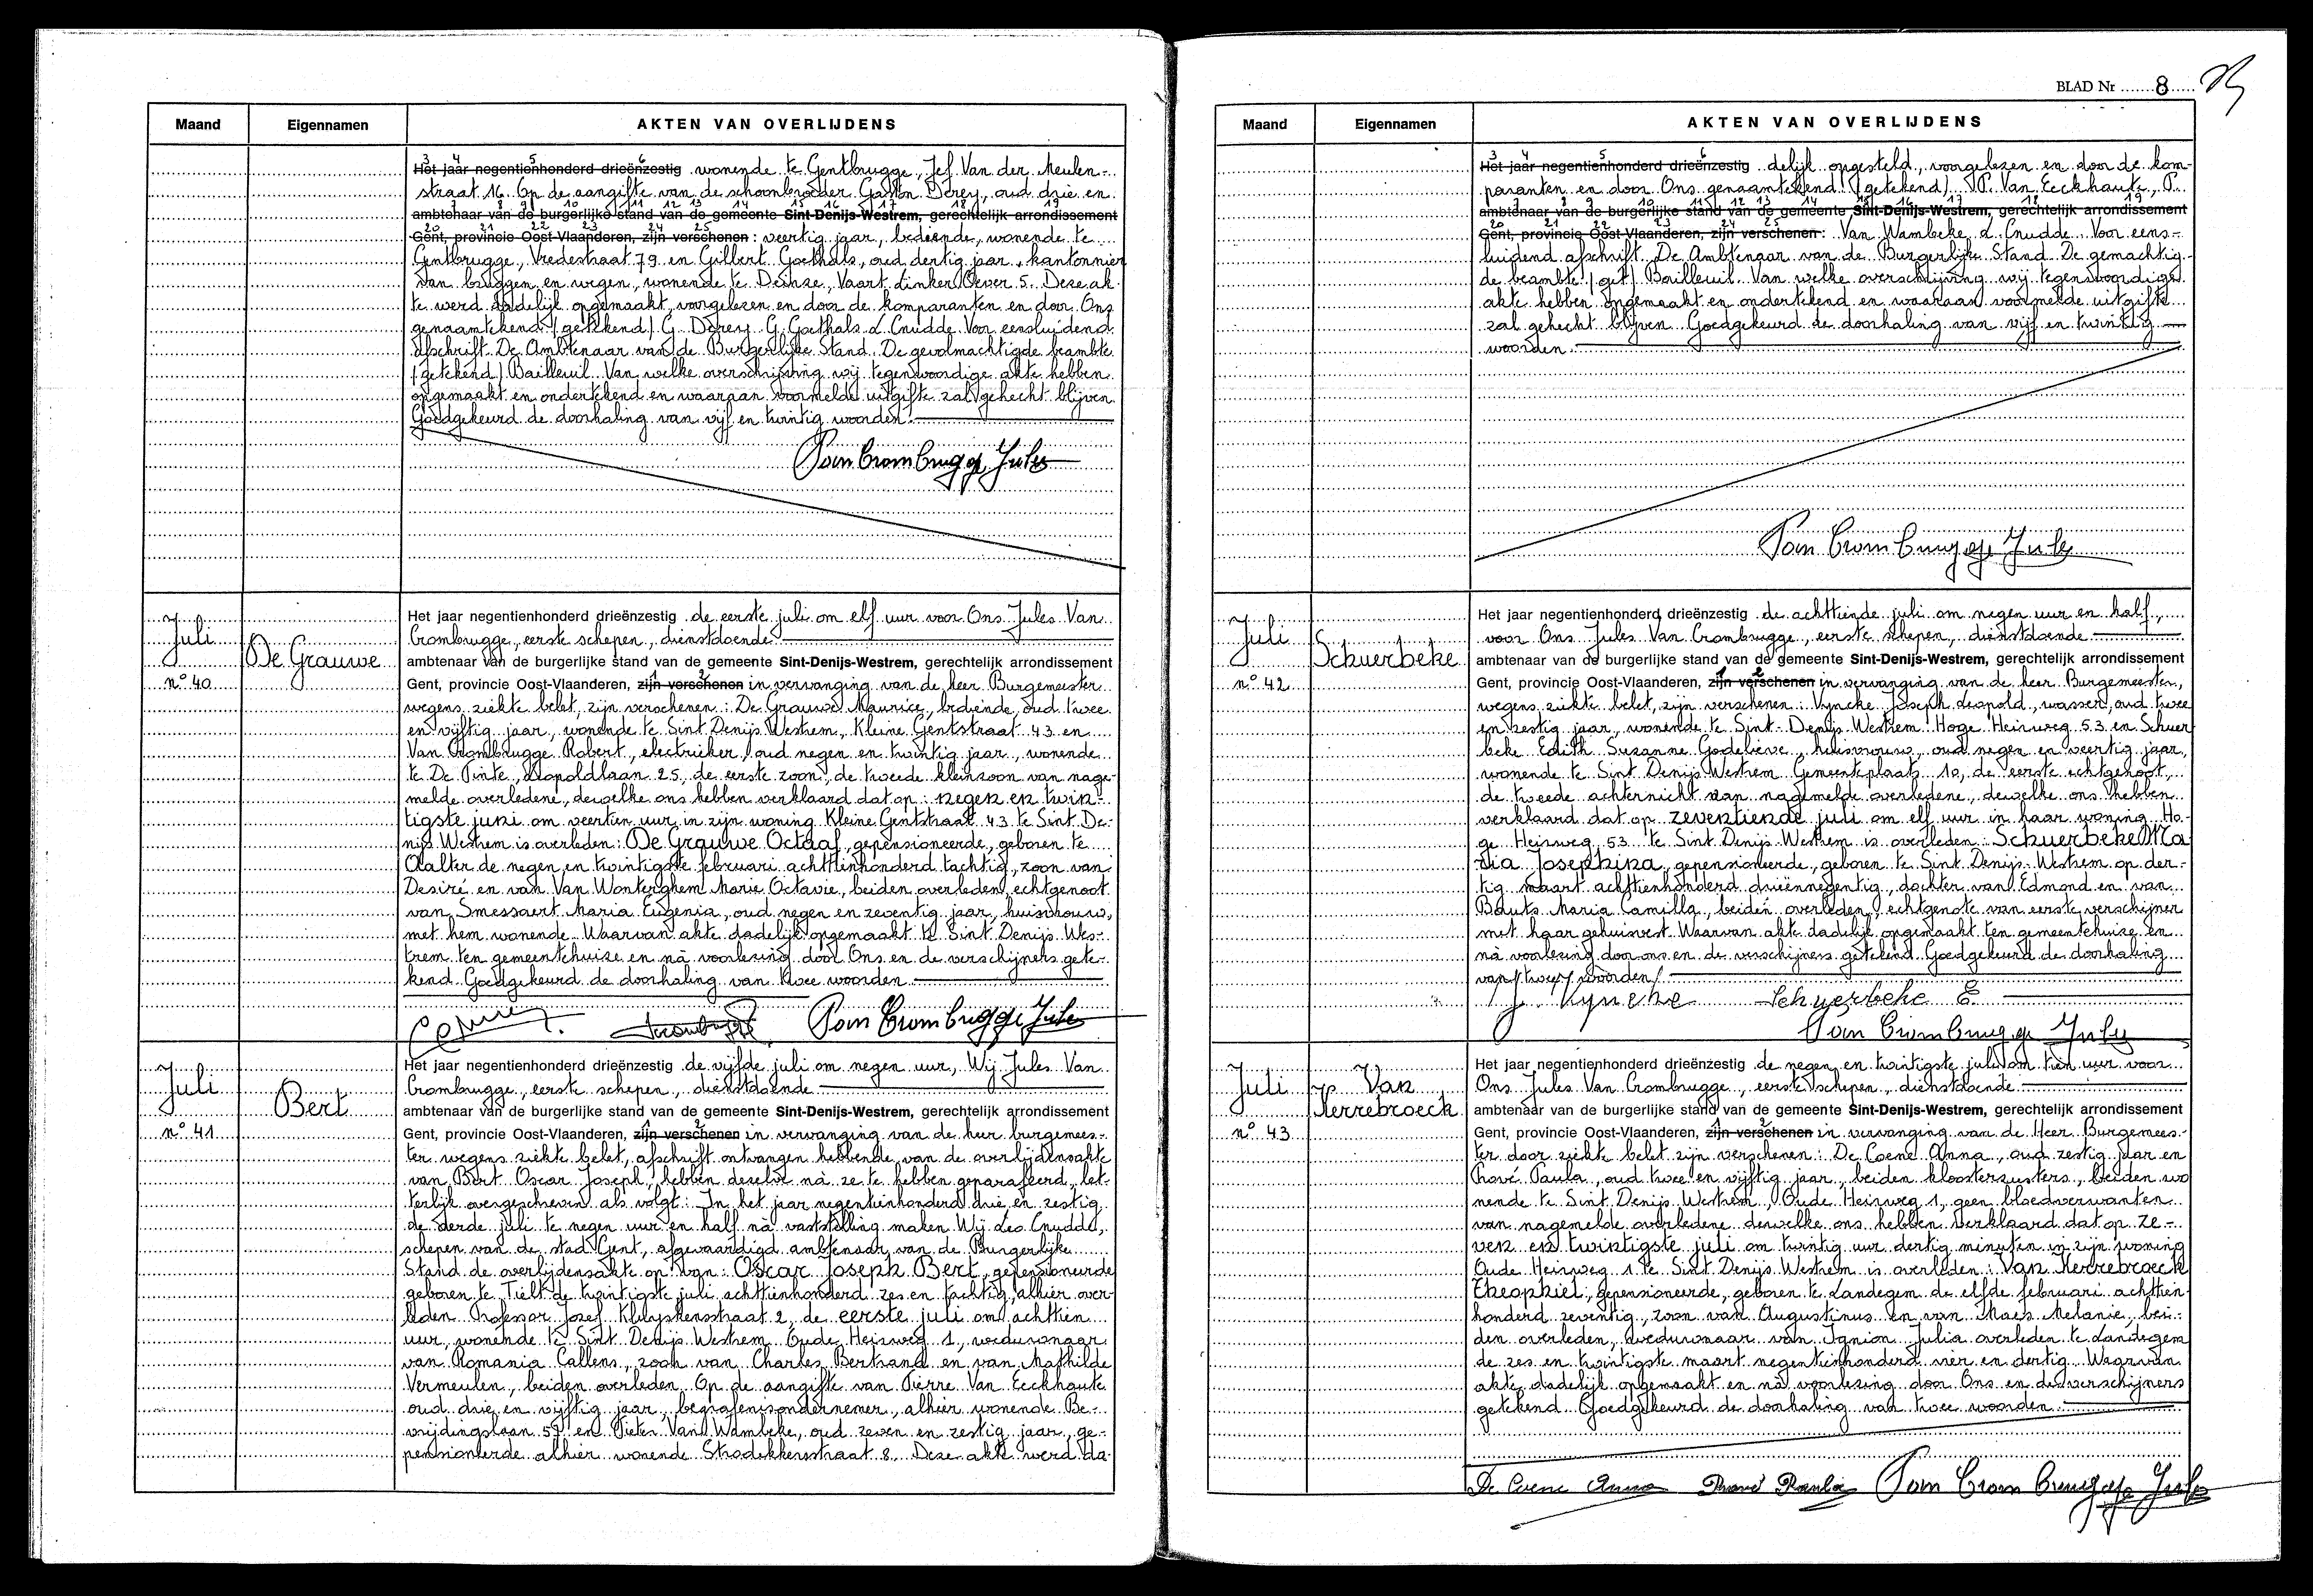 Maand Eigennamen AKTEN VAN OVERLIJDENS
3 4 5 6
Het jaar negentienhonderd drieënzestig wonende te Gentbrugge, Jef Van der Meulen-
straat 16. Op de aangifte van de schoonbroeder Gaston Dorey, oud drie en
7 8 9 10 11 12 13 14 15 16 17 18 19
ambtenaar van de burgerlijke stand van de gemeente Sint-Denijs-Westrem, gerechtelijk arrondissement
20 21 22 23 24 25
Gent, provincie Oost-Vlaanderen, zijn verschenen : veertig jaar, bediende, wonende te
Gentbrugge, Vredestraat 79 en Gilbert Goethals, oud dertig jaar, kantonnier
van bruggen en wegen, wonende te Deinze, Vaart Linker Oever 5. Deze ak-
te werd dadelijk opgemaakt, voorgelezen en door de komparanten en door Ons
genaamtekend (getekend) G. Dorey G. Goethals L Cnudde Voor eensluidend
afschrift De Ambtenaar van de Burgerlijke Stand. De gevolmachtigde beambte
(getekend) Bailleuil. Van welke overschrijving wij tegenwoordige akte hebben
opgemaakt en ondertekend en waaraan voormelde uitgifte zal gehecht blijven.
Goedgekeurd de doorhaling van vijf en twintig woorden.
Van Crombrugge Jules
Juli
De Grauwe
n° 40
Het jaar negentienhonderd drieënzestig de eerste juli om elf uur voor Ons Jules Van
Crombrugge, eerste schepen, dienstdoende
ambtenaar van de burgerlijke stand van de gemeente Sint-Denijs-Westrem, gerechtelijk arrondissement
1 2
Gent, provincie Oost-Vlaanderen, zijn verschenen in vervanging van de heer Burgemeester
wegens ziekte belet, zijn verschenen : De Grauwe Maurice, bediende, oud twee
en vijftig jaar, wonende te Sint Denijs Westrem, Kleine Gentstraat 43 en
Van Crombrugge Robert, electrieker, oud negen en twintig jaar, wonende
te De Pinte, Leopoldlaan 25, de eerste zoon, de tweede kleinzoon van nage-
melde overledene, dewelke ons hebben verklaard dat op : negen en twin-
tigste juni om veertien uur in zijn woning Kleine Gentstraat 43 te Sint De-
nijs Westrem is overleden : De Grauwe Octaaf, gepensioneerde, geboren te
Aalter de negen en twintigste februari achttienhonderd tachtig, zoon van
Desiré en van Van Wonterghem Marie Octavie, beiden overleden, echtgenoot
van Smessaert Maria Eugenia, oud negen en zeventig jaar, huisvrouw,
met hem wonende. Waarvan akte dadelijk opgemaakt te Sint Denijs Wes-
trem ten gemeentehuize en nà voorlezing door Ons en de verschijners gete-
kend Goedgekeurd de doorhaling van twee woorden
Van Crombrugge Jules
Juli
Bert
n° 41
Het jaar negentienhonderd drieënzestig de vijfde juli om negen uur, Wij Jules Van
Crombrugge, eerste schepen, dienstdoende
ambtenaar van de burgerlijke stand van de gemeente Sint-Denijs-Westrem, gerechtelijk arrondissement
1 2
Gent, provincie Oost-Vlaanderen, zijn verschenen in vervanging van de heer burgemees-
ter wegens ziekte belet, afschrift ontvangen hebbende van de overlijdensakte
van Bert Oscar Joseph, hebben dezelve nà ze te hebben geparafeerd, let-
terlijk overgeschreven als volgt : In het jaar negentienhonderd drie en zestig
de derde juli te negen uur en half nà vaststelling maken Wij Leo Cnudde,
schepen van de stad Gent, afgevaardigd ambtenaar van de Burgerlijke
Stand de overlijdensakte op van : Oscar Joseph Bert, gepensioneerde
geboren te Tielt de twintigste juli achttienhonderd zes en tachtig, alhier over-
leden Professor Jozef Kluyskensstraat 2, de eerste juli om achttien
uur, wonende te Sint Denijs Westrem Oude Heirweg 1, weduwnaar
van Romania Callens, zoon van Charles Bertrand en van Mathilde
Vermeulen, beiden overleden. Op de aangifte van Pierre Van Eeckhaute
oud drie en vijftig jaar, begrafenisondernemer, alhier wonende Be-
vrijdingslaan 57 en Pieter Van Wambeke, oud zeven en zestig jaar, ge-
pensioneerde alhier wonende Strodekkersstraat 8. Deze akte werd da-
BLAD Nr 8
Maand Eigennamen AKTEN VAN OVERLIJDENS
3 4 5 6
Het jaar negentienhonderd drieënzestig delijk opgesteld, voorgelezen en door de kom-
paranten en door Ons genaamtekend (getekend) P. Van Eeckhaute, P.
7 8 9 10 11 12 13 14 15 16 17 18 19
ambtenaar van de burgerlijke stand van de gemeente Sint-Denijs-Westrem, gerechtelijk arrondissement
20 21 22 23 24 25
Gent, provincie Oost-Vlaanderen, zijn verschenen : Van Wambeke L Cnudde. Voor eens-
luidend afschrift De Ambtenaar van de Burgerlijke Stand De gemachtig-
de beambte (get) Bailleuil. Van welke overschrijving wij tegenwoordige
akte hebben opgemaakt en ondertekend en waaraan voormelde uitgifte
zal gehecht blijven Goedgekeurd de doorhaling van vijf en twintig
woorden.
Van Crombrugge Jules
Juli
Schuerbeke
n° 42
Het jaar negentienhonderd drieënzestig de achttiende juli om negen uur en half,
voor Ons Jules Van Crombrugge, eerste schepen, dienstdoende
ambtenaar van de burgerlijke stand van de gemeente Sint-Denijs-Westrem, gerechtelijk arrondissement
1 2
Gent, provincie Oost-Vlaanderen, zijn verschenen in vervanging van de heer Burgemeester,
wegens ziekte belet, zijn verschenen : Vyncke Joseph Leopold, wasser, oud twee
en zestig jaar, wonende te Sint-Denijs Westrem Hoge Heirweg 53 en Schuer
beke Edith Suzanne Godelieve, huisvrouw, oud negen en veertig jaar,
wonende te Sint Denijs Westrem Gemeenteplaats 10, de eerste echtgenoot,
de tweede achternicht van nagemelde overledene, dewelke ons hebben
verklaard dat op zeventiende juli om elf uur in haar woning Ho-
ge Heirweg 53 te Sint Denijs Westrem is overleden : Schuerbeke Ma
ria Josephina, gepensioneerde, geboren te Sint Denijs Westrem op der-
tig maart achttienhonderd drieënnegentig, dochter van Edmond en van
Bauts Maria Camilla, beiden overleden, echtgenote van eerste verschijner
met haar gehuisvest. Waarvan akte dadelijk opgemaakt ten gemeentehuize en
nà voorlezing door ons en de verschijners getekend Goedgekeurd de doorhaling
van (twee) woorden/
J. Vyncke Schuerbeke E.
Van Crombrugge Jules
Juli
Van
Kerrebroeck
n° 43
Het jaar negentienhonderd drieënzestig de negen en twintigste juli om tien uur voor
Ons Jules Van Crombrugge, eerste schepen, dienstdoende
ambtenaar van de burgerlijke stand van de gemeente Sint-Denijs-Westrem, gerechtelijk arrondissement
1 2
Gent, provincie Oost-Vlaanderen, zijn verschenen in vervanging van de Heer Burgemees-
ter door ziekte belet zijn verschenen : De Coene Anna, oud zestig jaar en
Prové Paula, oud twee en vijftig jaar, beiden kloosterzusters, beiden wo
nende te Sint Denijs Westrem, Oude Heirweg 1, geen bloedverwanten
van nagemelde overledene dewelke ons hebben verklaard dat op ze-
ven en twintigste juli om twintig uur dertig minuten in zijn woning
Oude Heirweg 1 te Sint Denijs Westrem is overleden : Van Kerrebroeck
Theophiel, gepensioneerde, geboren te Landegem de elfde februari achttien
honderd zeventig, zoon van Augustinus en van Maes Melanie, bei-
den overleden, weduwnaar van Ignion Julia overleden te Landegem
de zes en twintigste maart negentienhonderd vier en dertig. Waarvan
akte dadelijk opgemaakt en nà voorlezing door Ons en de verschijners
getekend Goedgekeurd de doorhaling van twee woorden.
De Coene Anna Prové Paula Van Crombrugge Jules